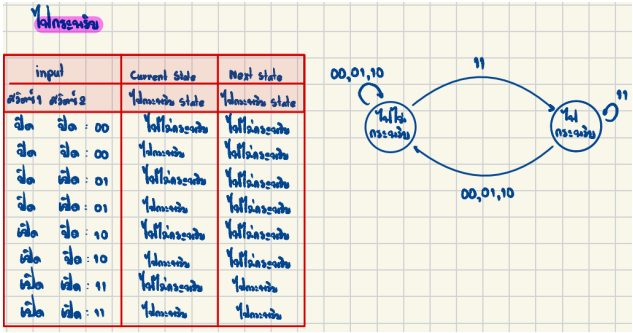 ไฟกระพริบ
input Current State Next State
สวิตซ์1 สวิตซ์2 ไฟกระพริบ state ไฟกระพริบ state
ปิด ปิด : 00 ไฟไม่กระพริบ ไฟไม่กระพริบ
ปิด ปิด : 00 ไฟกระพริบ ไฟไม่กระพริบ
ปิด เปิด : 01 ไฟไม่กระพริบ ไฟไม่กระพริบ
ปิด เปิด : 01 ไฟกระพริบ ไฟไม่กระพริบ
เปิด ปิด : 10 ไฟไม่กระพริบ ไฟไม่กระพริบ
เปิด ปิด : 10 ไฟกระพริบ ไฟไม่กระพริบ
เปิด เปิด : 11 ไฟไม่กระพริบ ไฟกระพริบ
เปิด เปิด : 11 ไฟกระพริบ ไฟกระพริบ
00,01,10
11
11
ไฟไม่
กระพริบ
ไฟ
กระพริบ
00,01,10